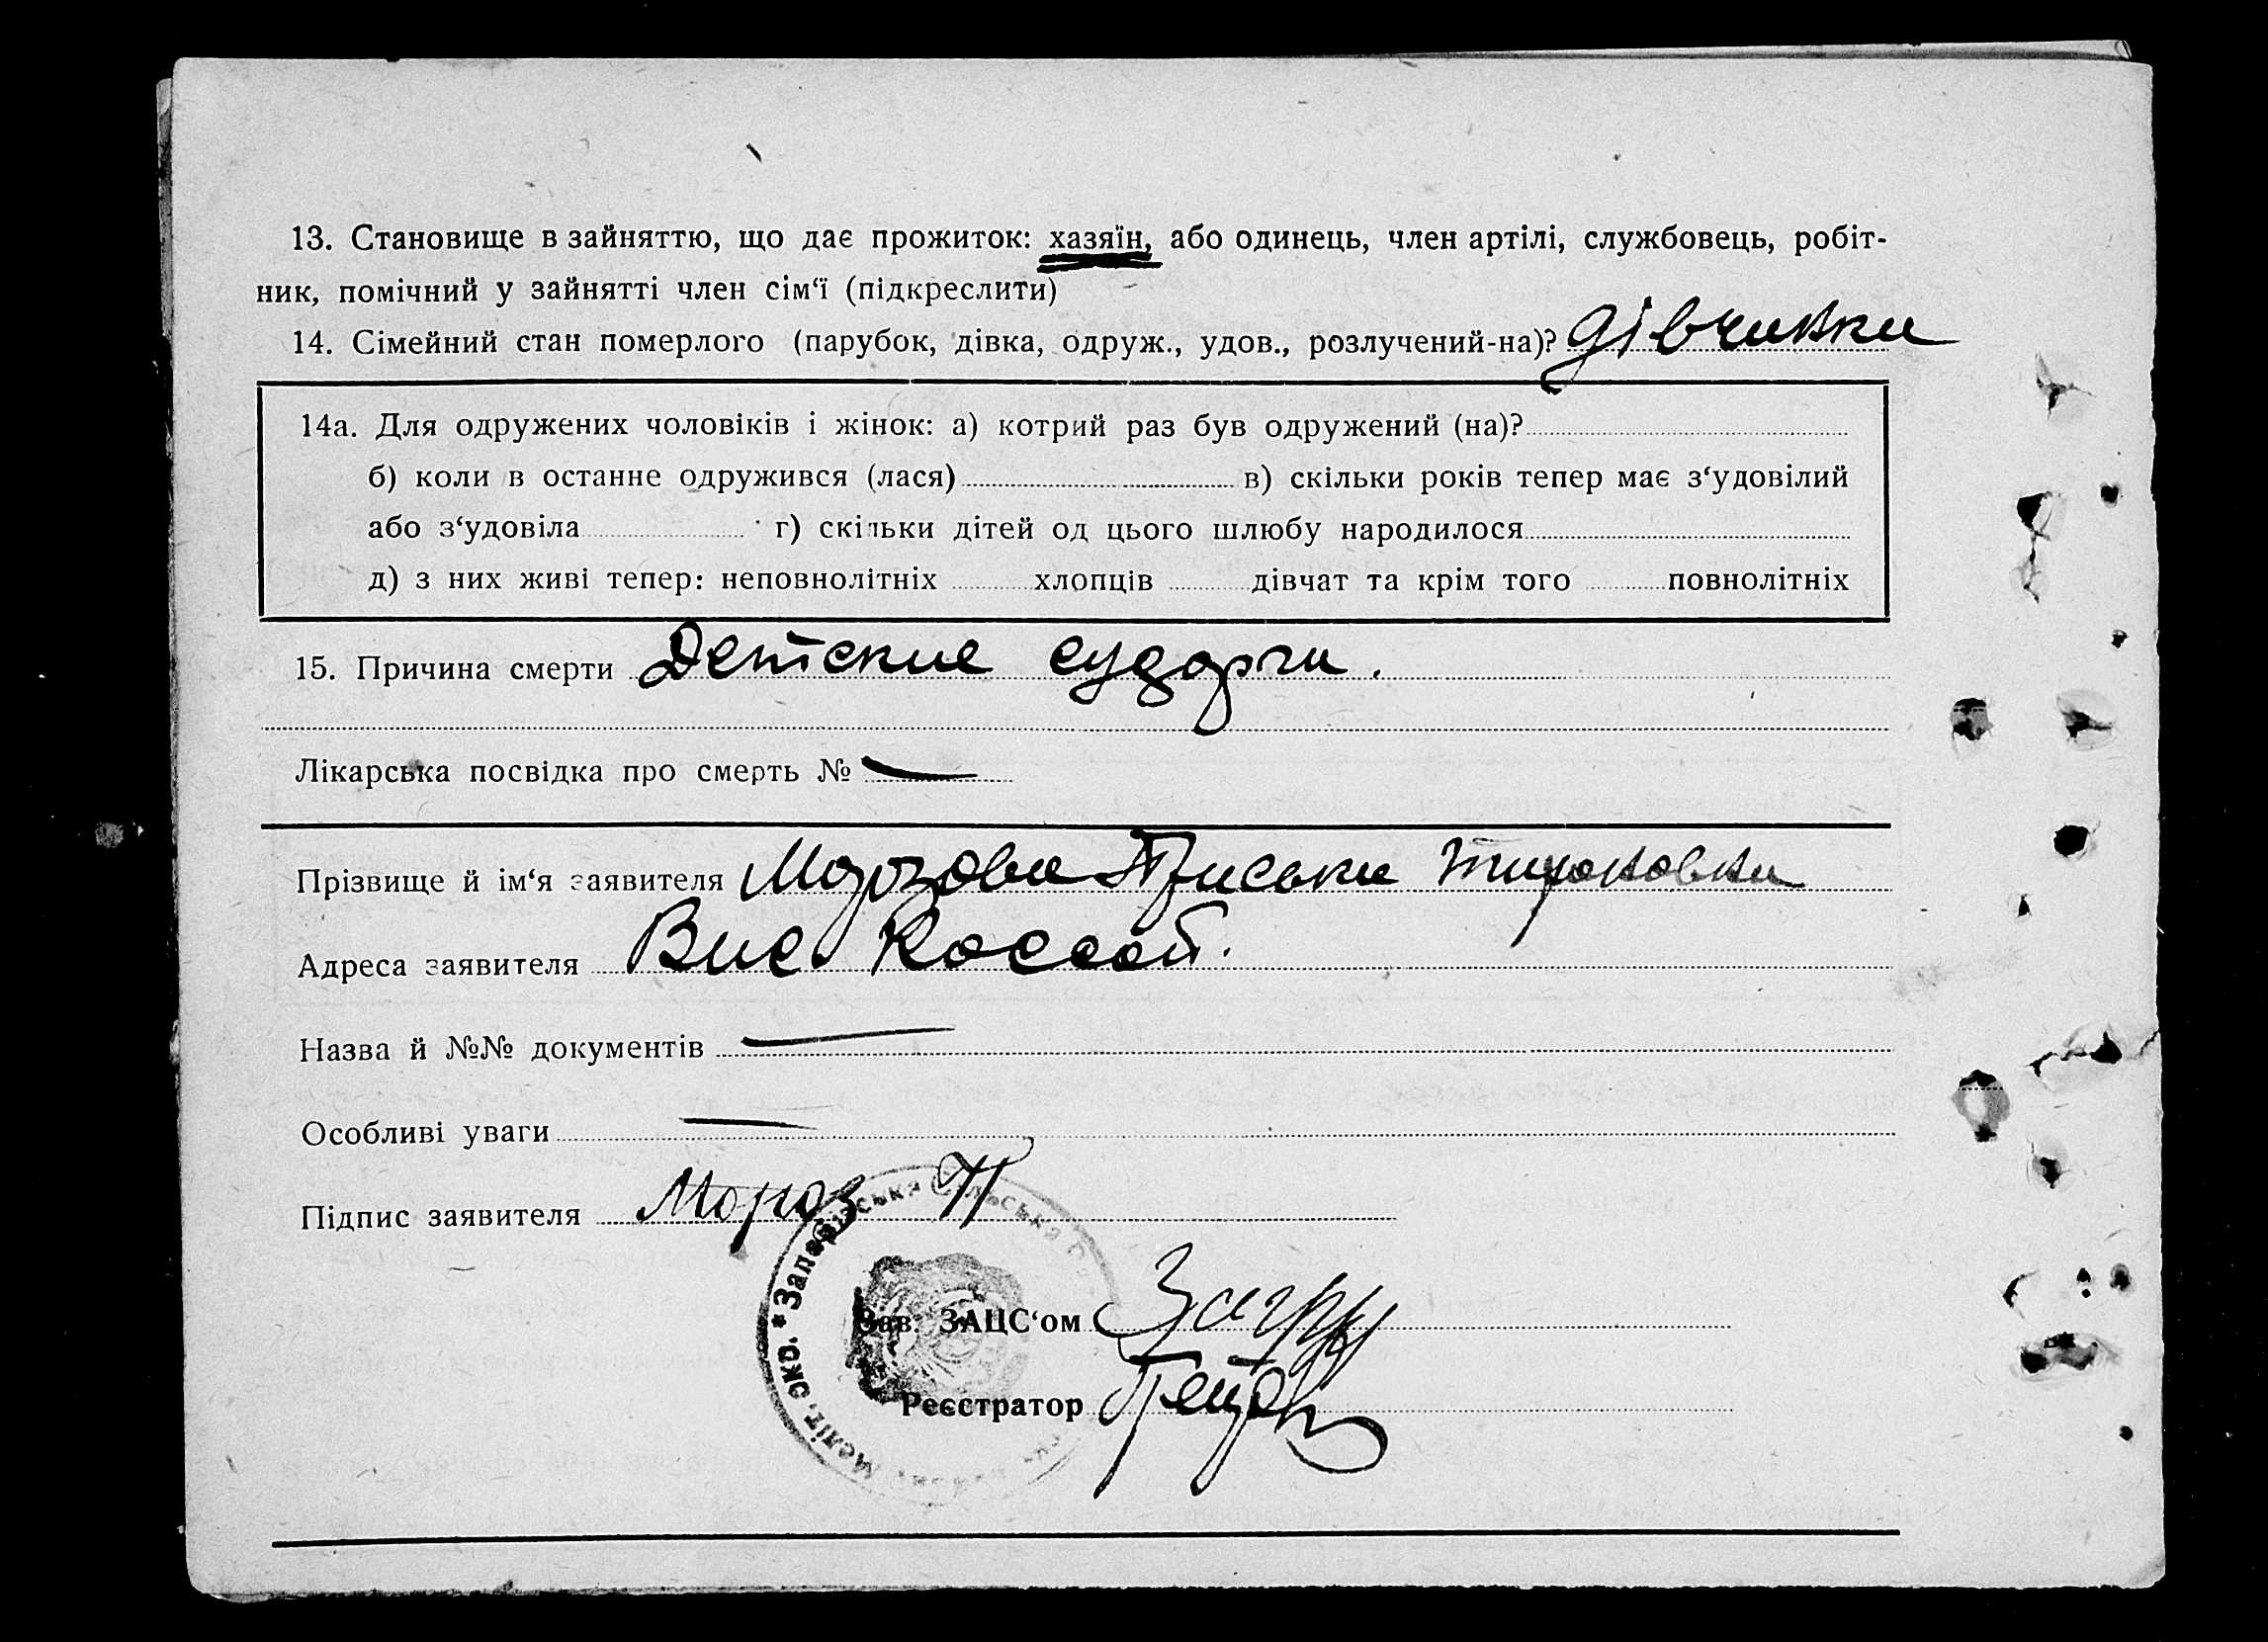 13. Становище в зайняттю, що дає прожиток: хазяїн, або одинець, член артілі, службовець, робіт-
ник, помічний у зайнятті член сім‘ї (підкреслити)
14. Сімейний стан померлого (парубок, дівка, одруж., удов., розлучений-на)? дівчинка
14а. Для одружених чоловіків і жінок: а) котрий раз був одружений (на)?
б) коли в останне одружився (лася) в) скільки років тепер має з‘удовілий
або з‘удовіла г) скільки дітей од цього шлюбу народилося
д) з них живі тепер: неповнолітніх хлопців дівчат та крім того повнолітніх
15. Причина смерти Детские судорги.
Лікарська посвідка про смерть №
Прізвище й ім‘я заявителя Морозова
Адреса заявителя Вис.
Назва й №№ документів
Особливі уваги
Підпис заявителя Мороз П
Зав. ЗАЦС‘ом
Реєстратор
Меліт. окр.